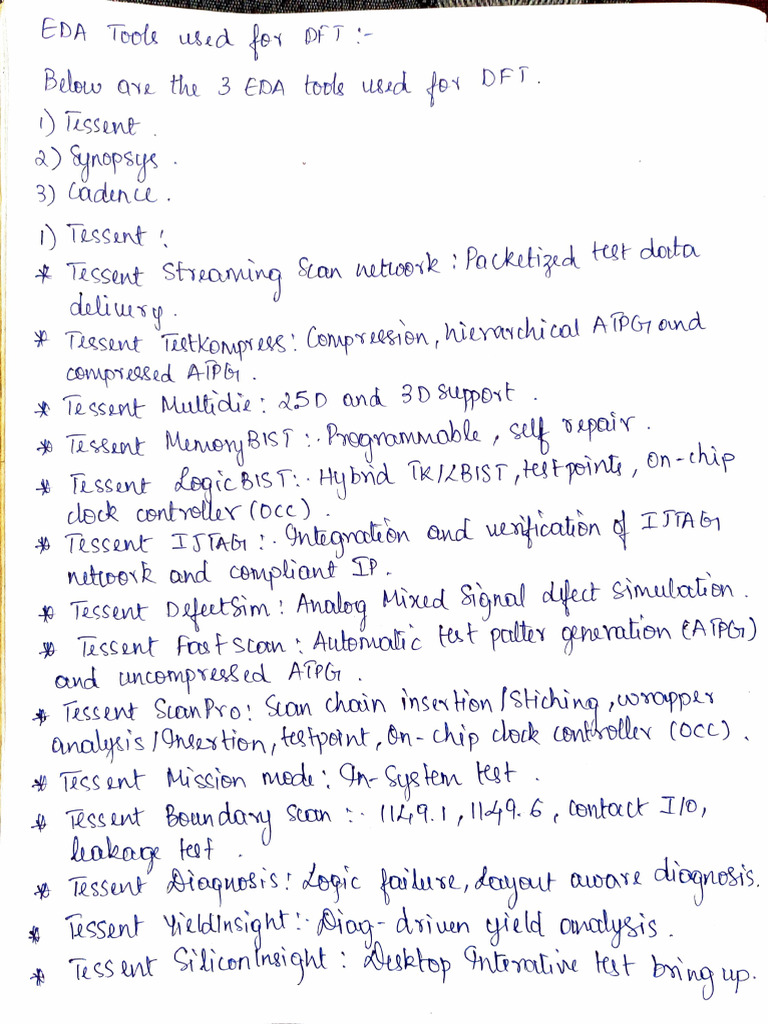 EDA Tools used for DFT :-
Below are the 3 EDA tools used for DFT.
1) Tessent.
2) Synopsys.
3) Cadence.
1) Tessent :
* Tessent Streaming Scan network : Packetized test data
delivery.
* Tessent TestKompress : Compression, hierarchical ATPG and
compressed ATPG.
* Tessent Multidie : 2.5D and 3D support.
* Tessent MemoryBIST :. Programmable, self repair.
* Tessent LogicBIST :. Hybrid TK/LBIST, test points, On-chip
clock controller (OCC).
* Tessent IJTAG :. Integration and verification of IJTAG
network and compliant IP.
* Tessent DefectSim : Analog Mixed Signal defect simulation.
* Tessent Fastscan : Automatic test patter generation (ATPG)
and uncompressed ATPG.
* Tessent ScanPro : Scan chain insertion/Stiching, wrapper
analysis/Insertion, testpoint, On-chip clock controller (OCC).
* Tessent Mission mode : In-System test.
* Tessent Boundary scan :. 1149.1, 1149.6, contact I/O,
leakage test.
* Tessent Diagnosis : Logic failure, Layout aware diagnosis.
* Tessent YieldInsight :. Diag-driven yield analysis.
* Tessent SiliconInsight : Desktop Interative test bring up.